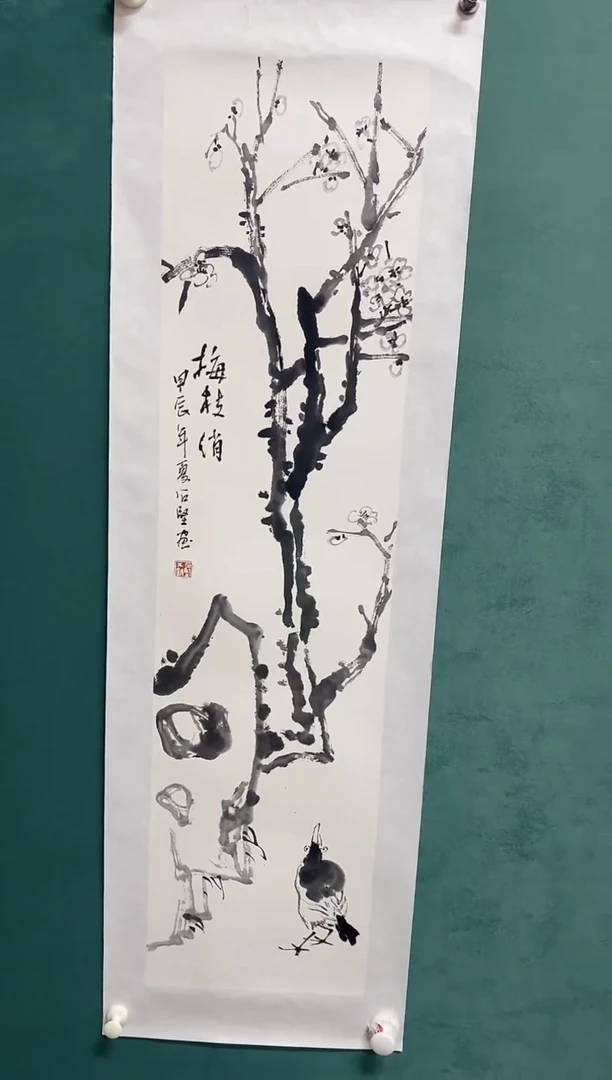 梅枝俏
甲辰年夏石坚画